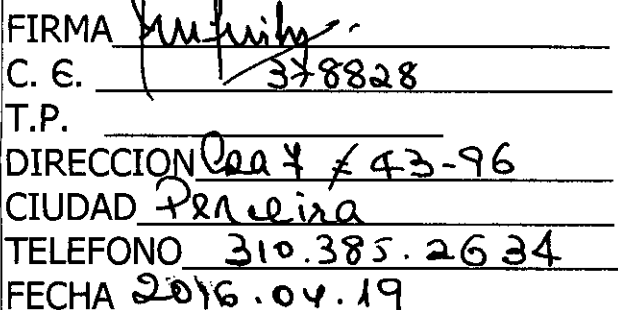 FIRMA
C. C. 378828
T.P.
DIRECCION Cra 7 # 43-96
CIUDAD Pereira
TELEFONO 310.385.2634
FECHA 2016.04.19